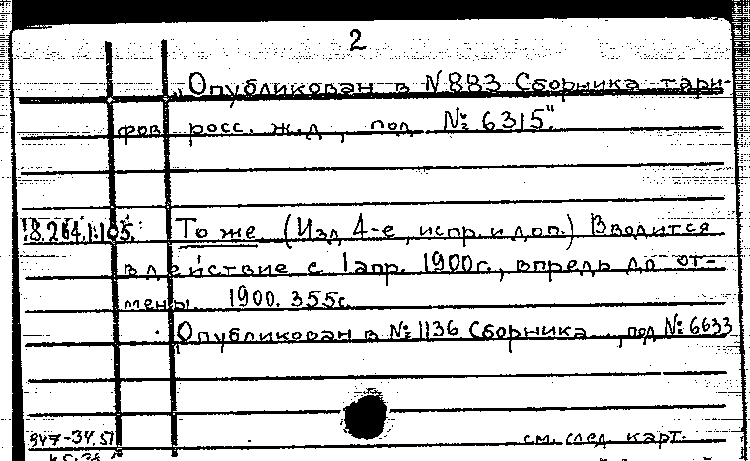 2
„Опубликован в N 883 Сборника тари-
фов росс. ж.д, под № 6315".
18.264.1.105. То же (Изд 4-е, испр. и доп.) Вводится
в действие с 1 апр. 1900г., впредь до от-
мены. 1900. 355с.
„Опубликован в № 1136 Сборника.., под № 6633
347-34.51
см. след. карт.